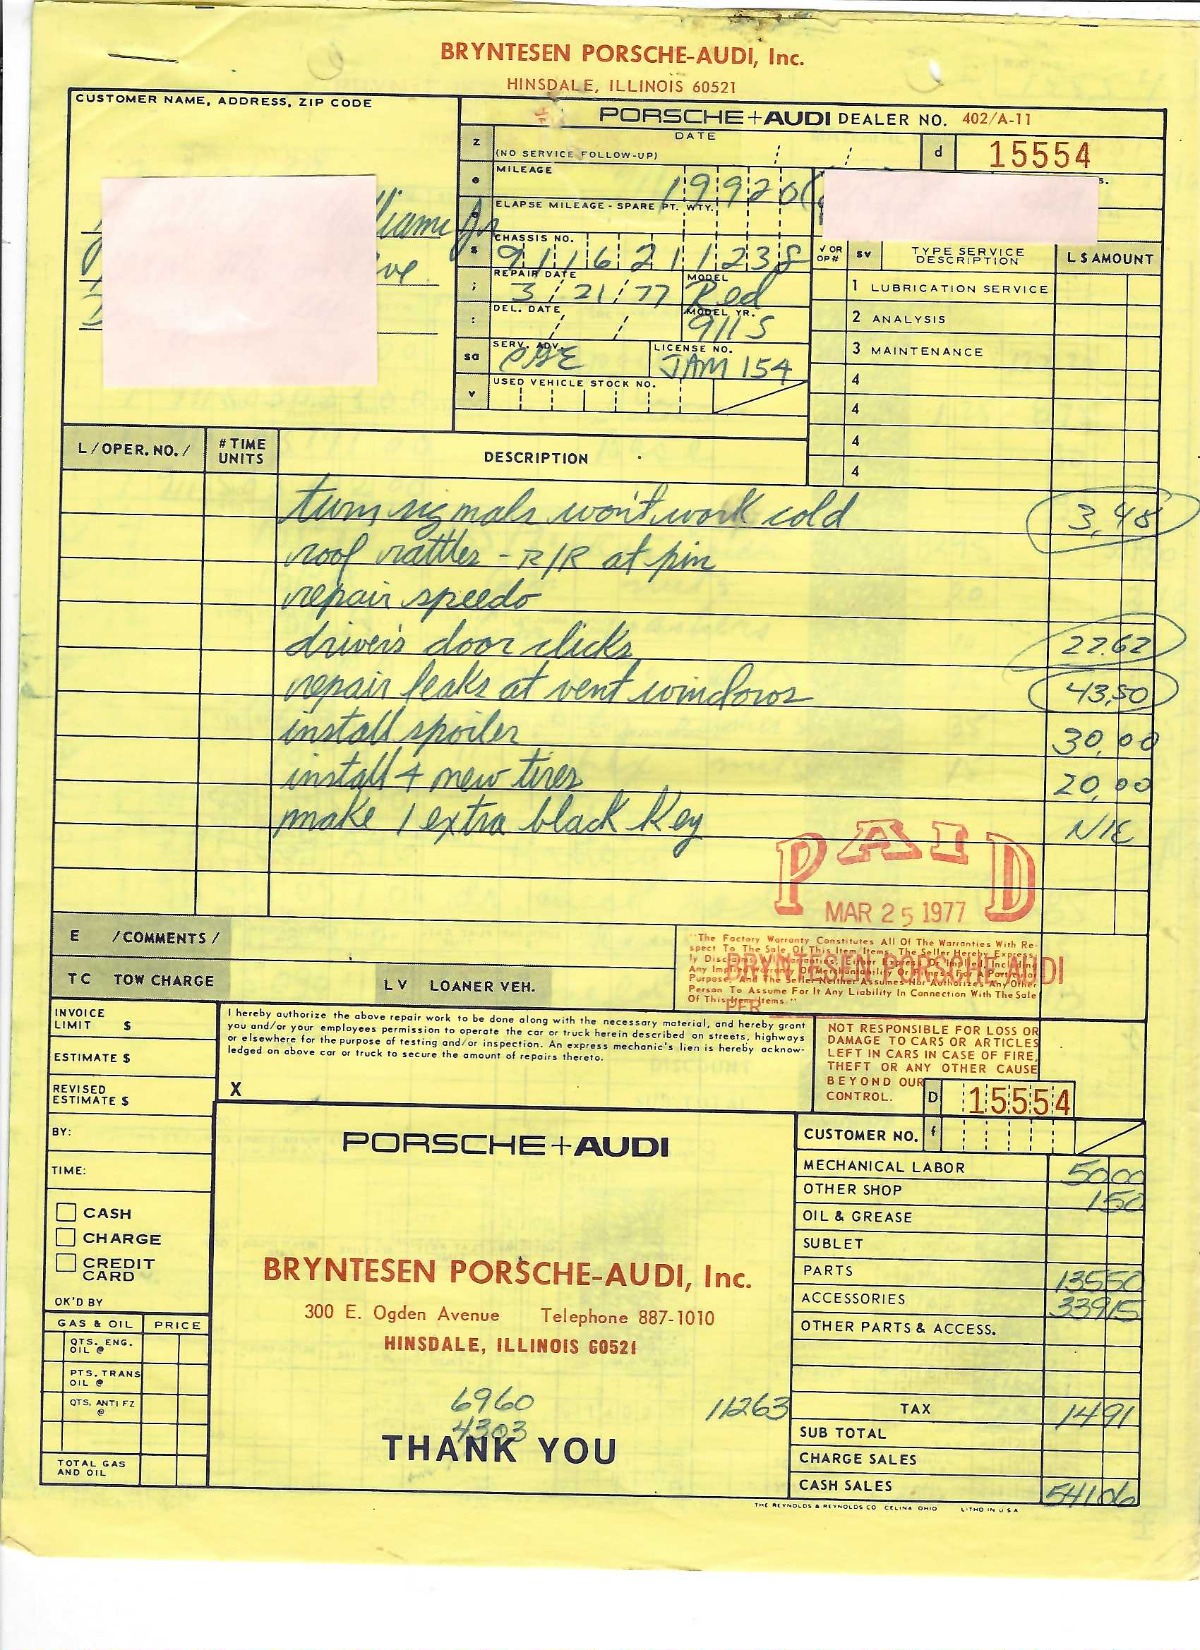 BRYNTESEN PORSCHE-AUDI, Inc.
HINSDALE, ILLINOIS 60521
CUSTOMER NAME, ADDRESS, ZIP CODE
PORSCHE+AUDI DEALER NO. 402/A-11
z DATE
(NO SERVICE FOLLOW-UP) / /
d 15554
MILEAGE
19920
ELAPSE MILEAGE - SPARE PT. WTY.
CHASSIS NO.
9116211238
REPAIR DATE
3/21/77
MODEL
Red
DEL. DATE
/ /
MODEL YR.
911S
sa SERV. ADV.
LICENSE NO.
JAM 154
v USED VEHICLE STOCK NO.
√ OR OP# SV TYPE SERVICE DESCRIPTION LS AMOUNT
1 LUBRICATION SERVICE
2 ANALYSIS
3 MAINTENANCE
4
4
4
4
L/OPER. NO./ # TIME UNITS DESCRIPTION
turn signals won't work cold 3,48
roof rattles - R/R at pin
repair speedo
driver's door clicks 22.62
repair leaks at vent windows 43,50
install spoiler 30,00
install 4 new tires 20,00
make 1 extra black key N/C
PAID
MAR 25 1977
BRYNTESEN PORSCHE AUDI
PER
E /COMMENTS/
TC TOW CHARGE LV LOANER VEH.
"The Factory Warranty Constitutes All Of The Warranties With Re-
spect To The Sale Of This Item/Items. The Seller Hereby Express-
ly Disclaims All Warranties, Either Express Or Implied, Including
Any Implied Warranty Of Merchantability Or Fitness For A Particular
Purpose, And The Seller Neither Assumes Nor Authorizes Any Other
Person To Assume For It Any Liability In Connection With The Sale
Of This Item/Items."
INVOICE LIMIT $
ESTIMATE $
REVISED ESTIMATE $
BY:
TIME:
CASH
CHARGE
CREDIT CARD
OK'D BY
I hereby authorize the above repair work to be done along with the necessary material, and hereby grant
you and/or your employees permission to operate the car or truck herein described on streets, highways
or elsewhere for the purpose of testing and/or inspection. An express mechanic's lien is hereby acknow-
ledged on above car or truck to secure the amount of repairs thereto.
X
NOT RESPONSIBLE FOR LOSS OR
DAMAGE TO CARS OR ARTICLES
LEFT IN CARS IN CASE OF FIRE,
THEFT OR ANY OTHER CAUSE
BEYOND OUR
CONTROL.
D 15554
CUSTOMER NO. f
MECHANICAL LABOR 5000
OTHER SHOP 150
OIL & GREASE
SUBLET
PARTS 13550
ACCESSORIES 33915
OTHER PARTS & ACCESS.
TAX 1491
SUB TOTAL
CHARGE SALES
CASH SALES 54106
GAS & OIL PRICE
QTS. ENG. OIL @
PTS. TRANS OIL @
QTS. ANTI FZ @
TOTAL GAS AND OIL
PORSCHE+AUDI
BRYNTESEN PORSCHE-AUDI, Inc.
300 E. Ogden Avenue Telephone 887-1010
HINSDALE, ILLINOIS 60521
6960 11263
4303
THANK YOU
THE REYNOLDS & REYNOLDS CO CELINA OHIO LITHO IN U.S.A